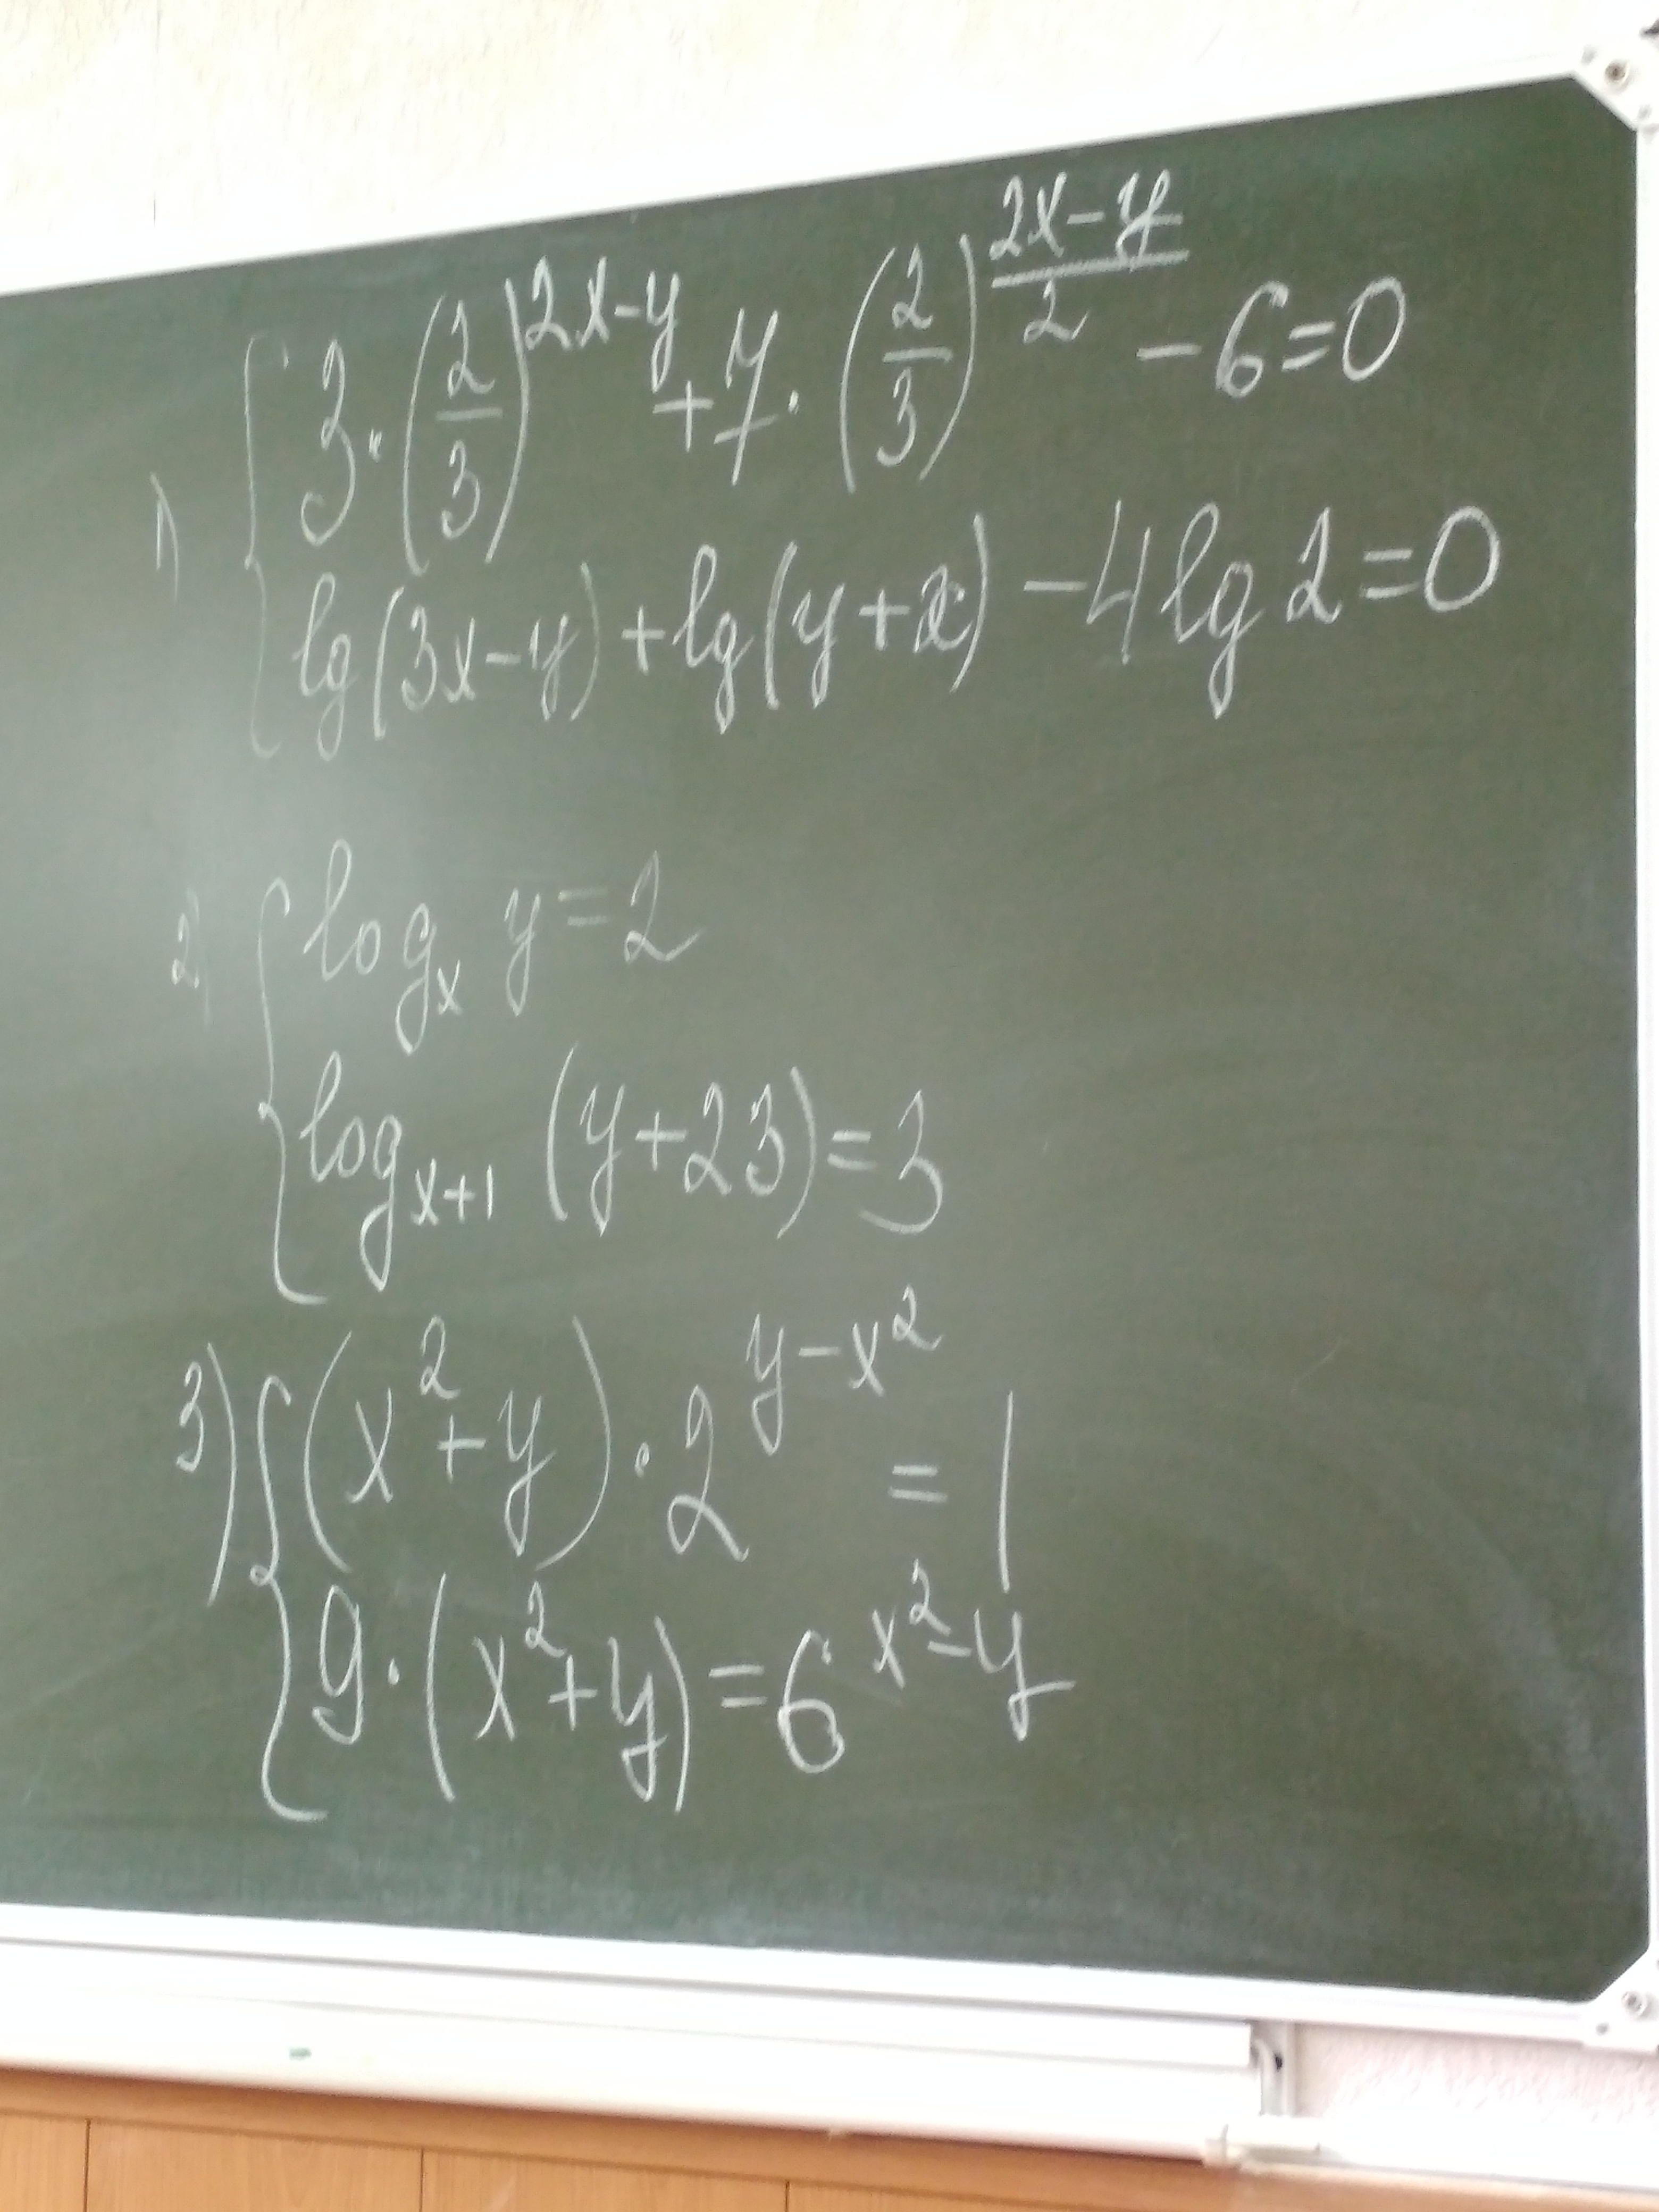 1) { 3·(2/3)^(2x-y) + 7·(2/3)^((2x-y)/2) - 6=0
lg(3x-y)+lg(y+x) - 4lg2=0
2) { log_x y=2
log_(x+1) (y+23)=3
3) { (x²+y)·2^(y-x²) = 1
9·(x²+y)=6^(x²-y)